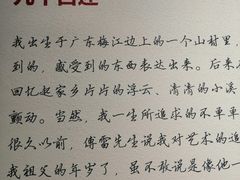 我出生于广东梅江边上的一个山村里，
到的，感受到的东西表达出来。后来
回忆起家乡片片的浮云、清清的小溪
颤动。当然，我一生所追求的不单单
很久以前，傅雷先生说我对艺术的追
我祖父的年岁了，虽不敢说是像他一